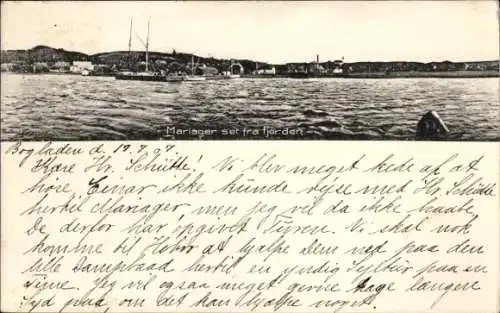 Mariager set fra fjorden
Bogladen d. 19.7.07.
Kære Hr. Schütte! Vi blev meget kede af at
høre, Einar ikke kunde rejse med Hr. Schütte
hertil Mariager, men jeg vil da ikke haabe,
De derfor har opgivet Turen. Vi skal nok
komme til Hobro at hjælpe Dem ned paa den
lille Dampbaad hertil, en yndig Sejltur paa en
Time. Jeg vil ogsaa meget gerne tage langen
Syd paa, om det kan hjælpe noget.